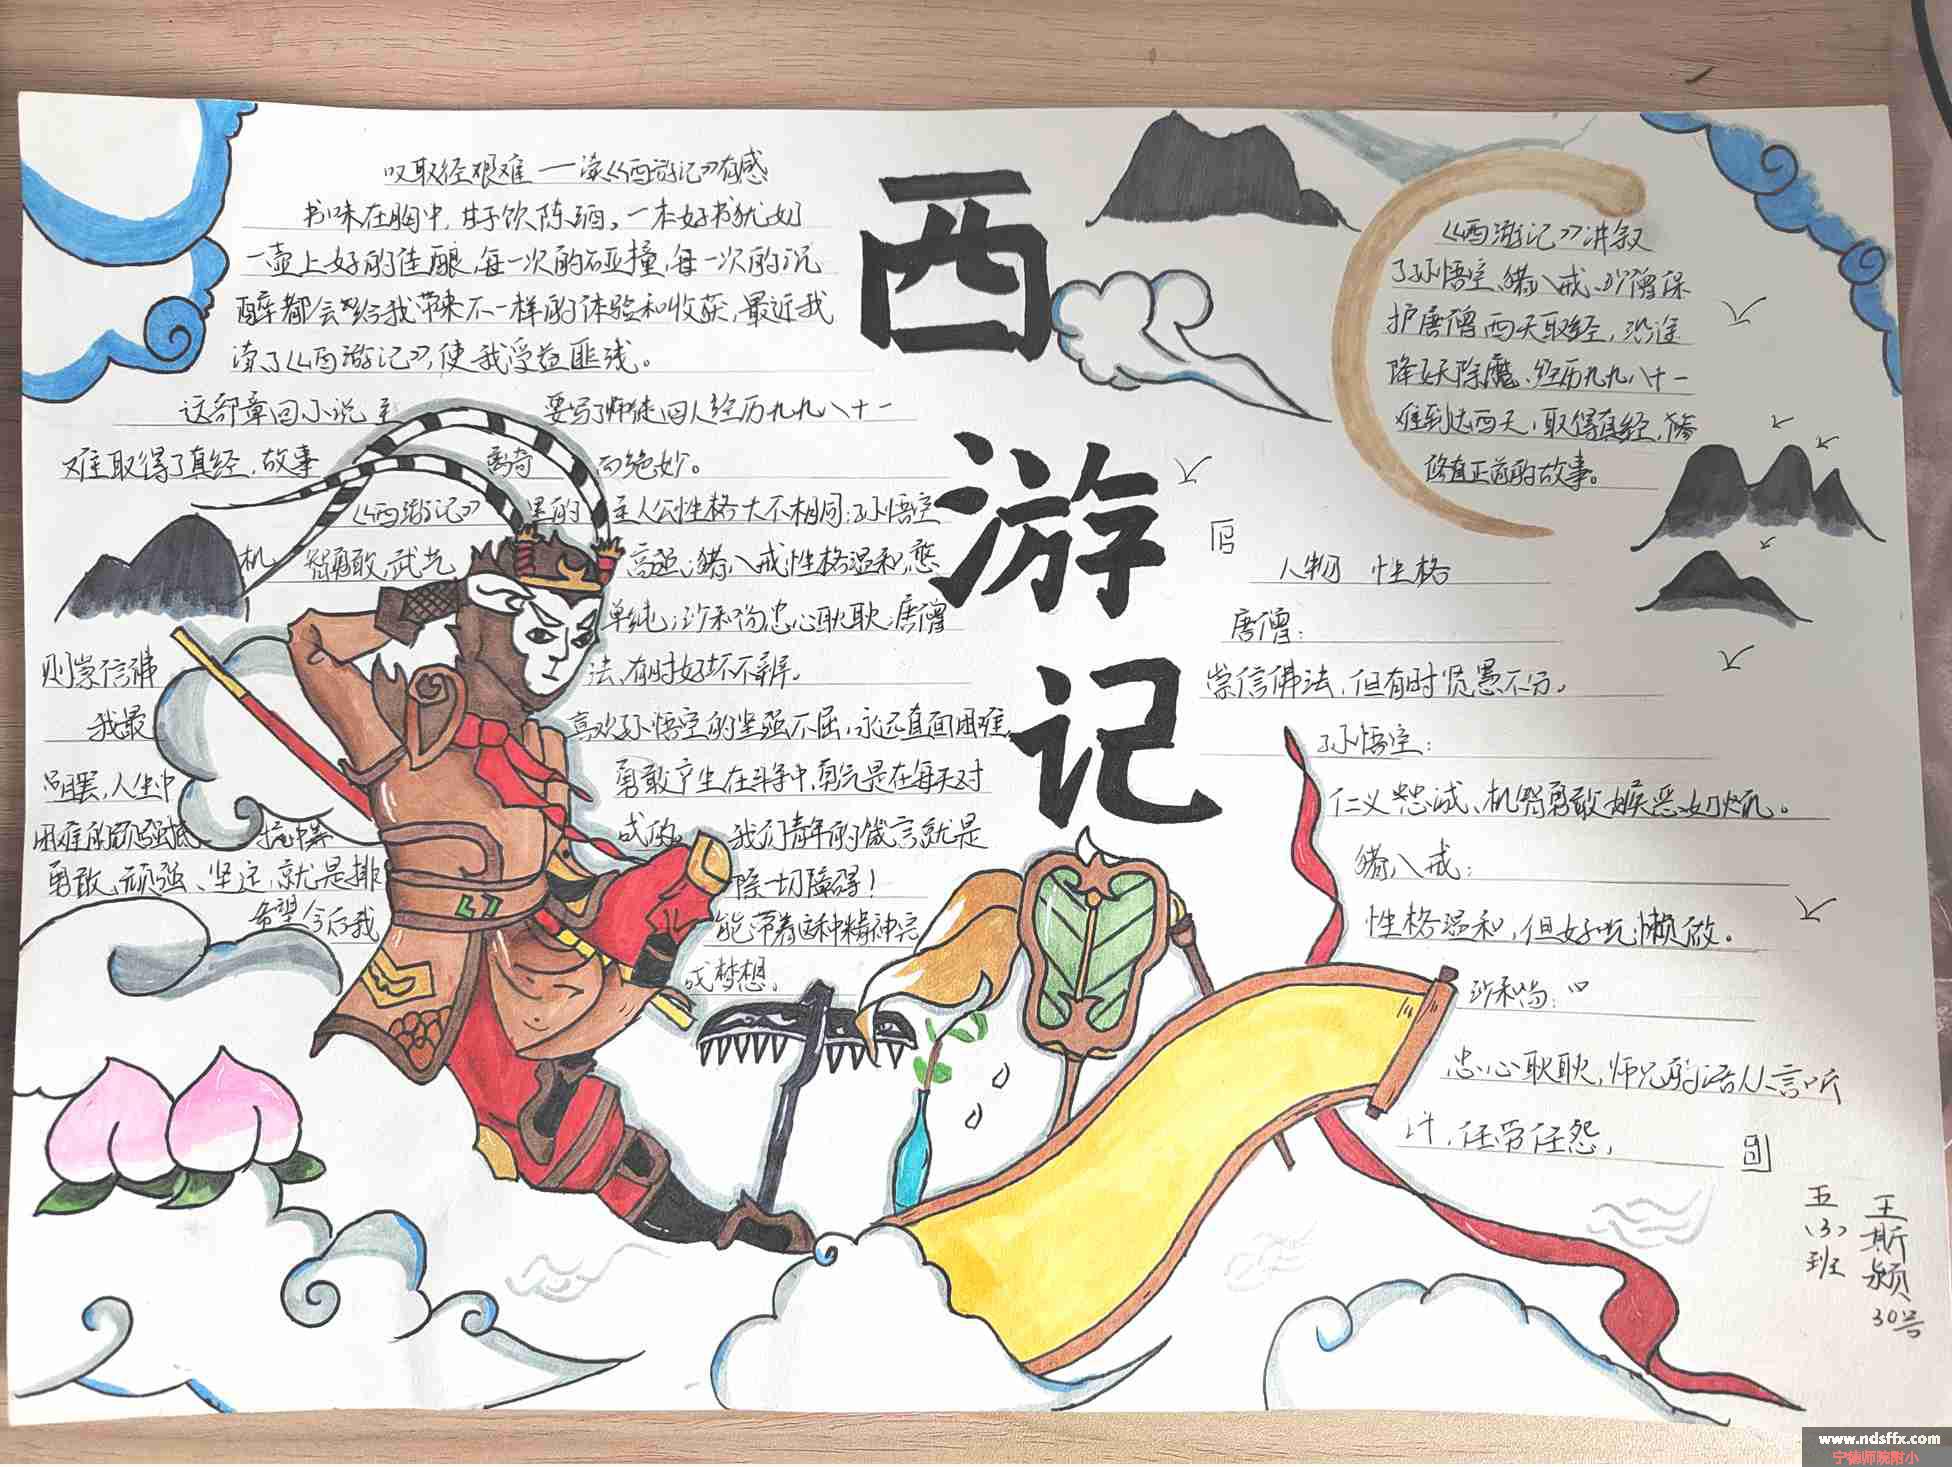 西游记
叹取经艰难——读《西游记》有感
书味在胸中,甘于饮陈酒。一本好书犹如
一壶上好的佳酿,每一次的碰撞,每一次的沉
醉都会给我带来不一样的体验和收获,最近我
读了《西游记》,使我受益匪浅。
这部章回小说主要写了师徒四人经历九九八十一
难取得了真经,故事离奇而绝妙。
《西游记》里的主人公性格大不相同:孙悟空
机智勇敢,武艺高强;猪八戒性格温和,憨
单纯;沙和尚忠心耿耿;唐僧
则崇信佛法,有时好坏不辨。
我最喜欢孙悟空的坚强不屈,永远直面困难,
勇敢产生在斗争中,勇气是在每天对
困难的顽强抵抗中
成的。我们青年的箴言就是
勇敢、顽强、坚定,就是排除一切障碍!
希望今后我能带着这种精神完
成梦想。
《西游记》讲叙
了孙悟空、猪八戒、沙僧保
护唐僧西天取经,沿途
降妖除魔、经历九九八十一
难到达西天,取得真经,修
修真正道的故事。
人物 性格
唐僧:
崇信佛法,但有时贤愚不分。
孙悟空:
仁义忠诚、机智勇敢嫉恶如仇。
猪八戒:
性格温和,但好吃懒做。
沙和尚:
忠心耿耿,师兄的话从言听
计,任劳任怨,
五(3)班
王斯颖
30号
www.ndsffx.com
宁德师院附小